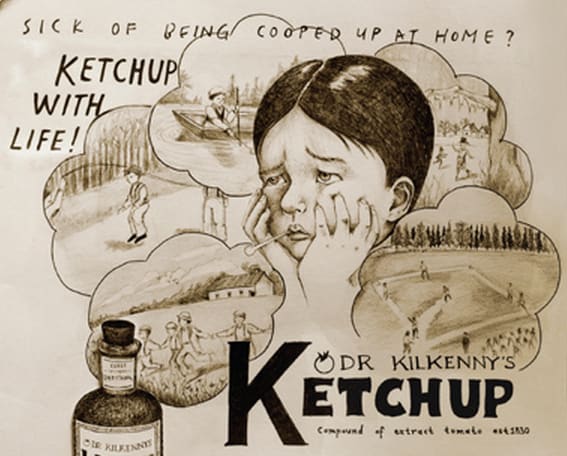 SICK OF BEING COOPED UP AT HOME?
KETCHUP
WITH
LIFE!
DR KILKENNY'S
KETCHUP
Compound of extract tomato est 1830
DR KILKENNY'S